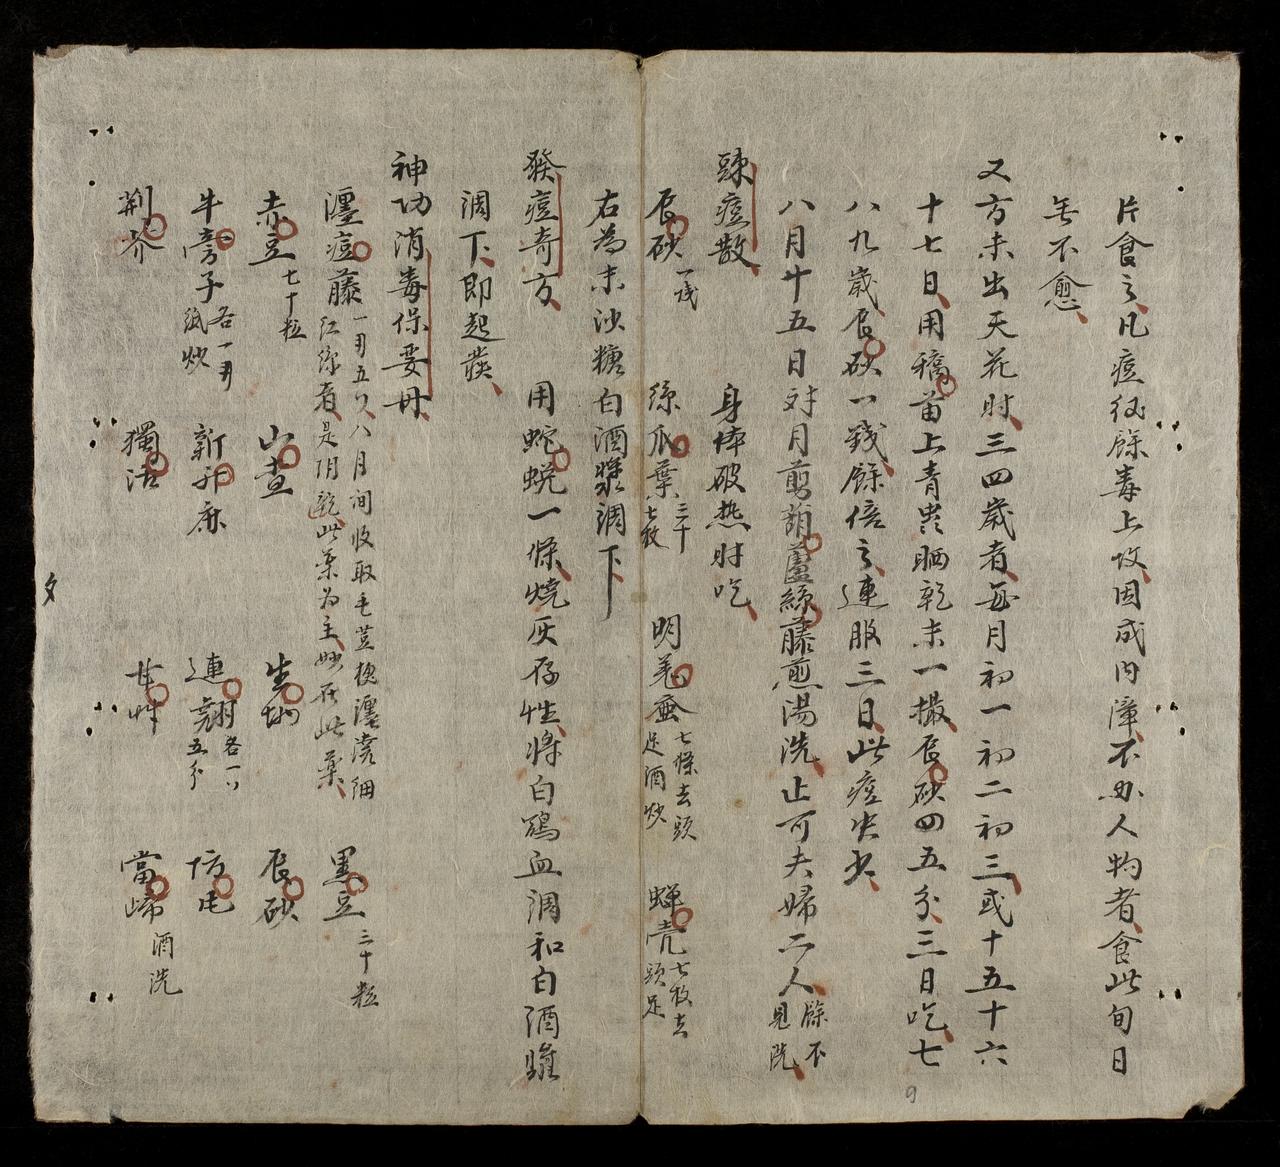 片食之凡痘後餘毒上攻因成內障不母人物者食此旬日
無不愈
又方未出天花时三四歲者每月初一初二初三或十五十六
十七日用稿苗上青虫晒乾末一撮辰砂四五分三日吃七
八九歲辰砂一錢餘倍之連服三日此痘失出
八月十五日对月剪葫蘆絲藤煎湯洗止可夫婦二人餘不見洗
踈痘散 身体破热时吃
辰砂一戋 絲瓜葉三十七枚 明姜蚕七條去頭足酒炒 蝉壳七枚去頭足
右為末沙糖白酒漿調下
發痘奇方 用蛇蜕一條燒灰存性將白鴿血調和白酒漿
調下即起發
神功消毒保嬰丹
纏痘藤一用五八月间收取毛荳梗纏澆細紅線者是阴乾此藥为主妙在此藥 黑豆三十粒
赤豆七十粒 山查 生地 辰砂
牛旁子各一用紙炒 新升麻 連翹各一五分 防毛
荆芥 獨活 甘艸 當歸酒洗